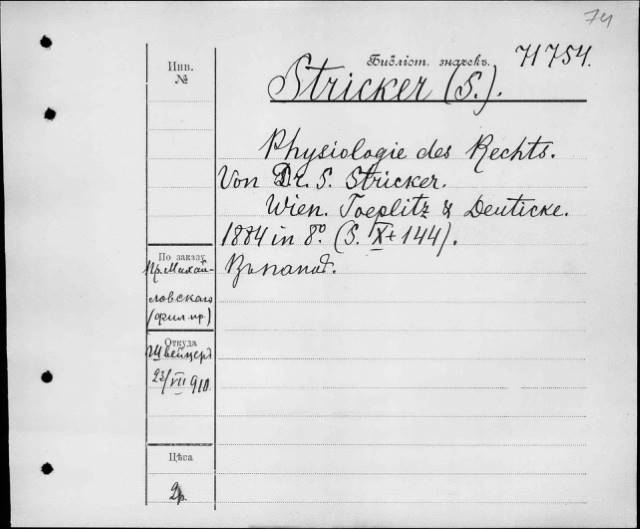 74
Инв.
№
Библіот. значекъ.
71754.
Stricker (S.).
Physiologie des Rechts.
Von Dr. S. Stricker.
Wien. Toeplitz & Deuticke.
1884 in 8º. (S. X + 144).
Въ папат.
По заказу
Пр. Михай-
ловскаго
(фил. пр)
Откуда
Швейцеръ
23/VII 910
Цѣна
2р.